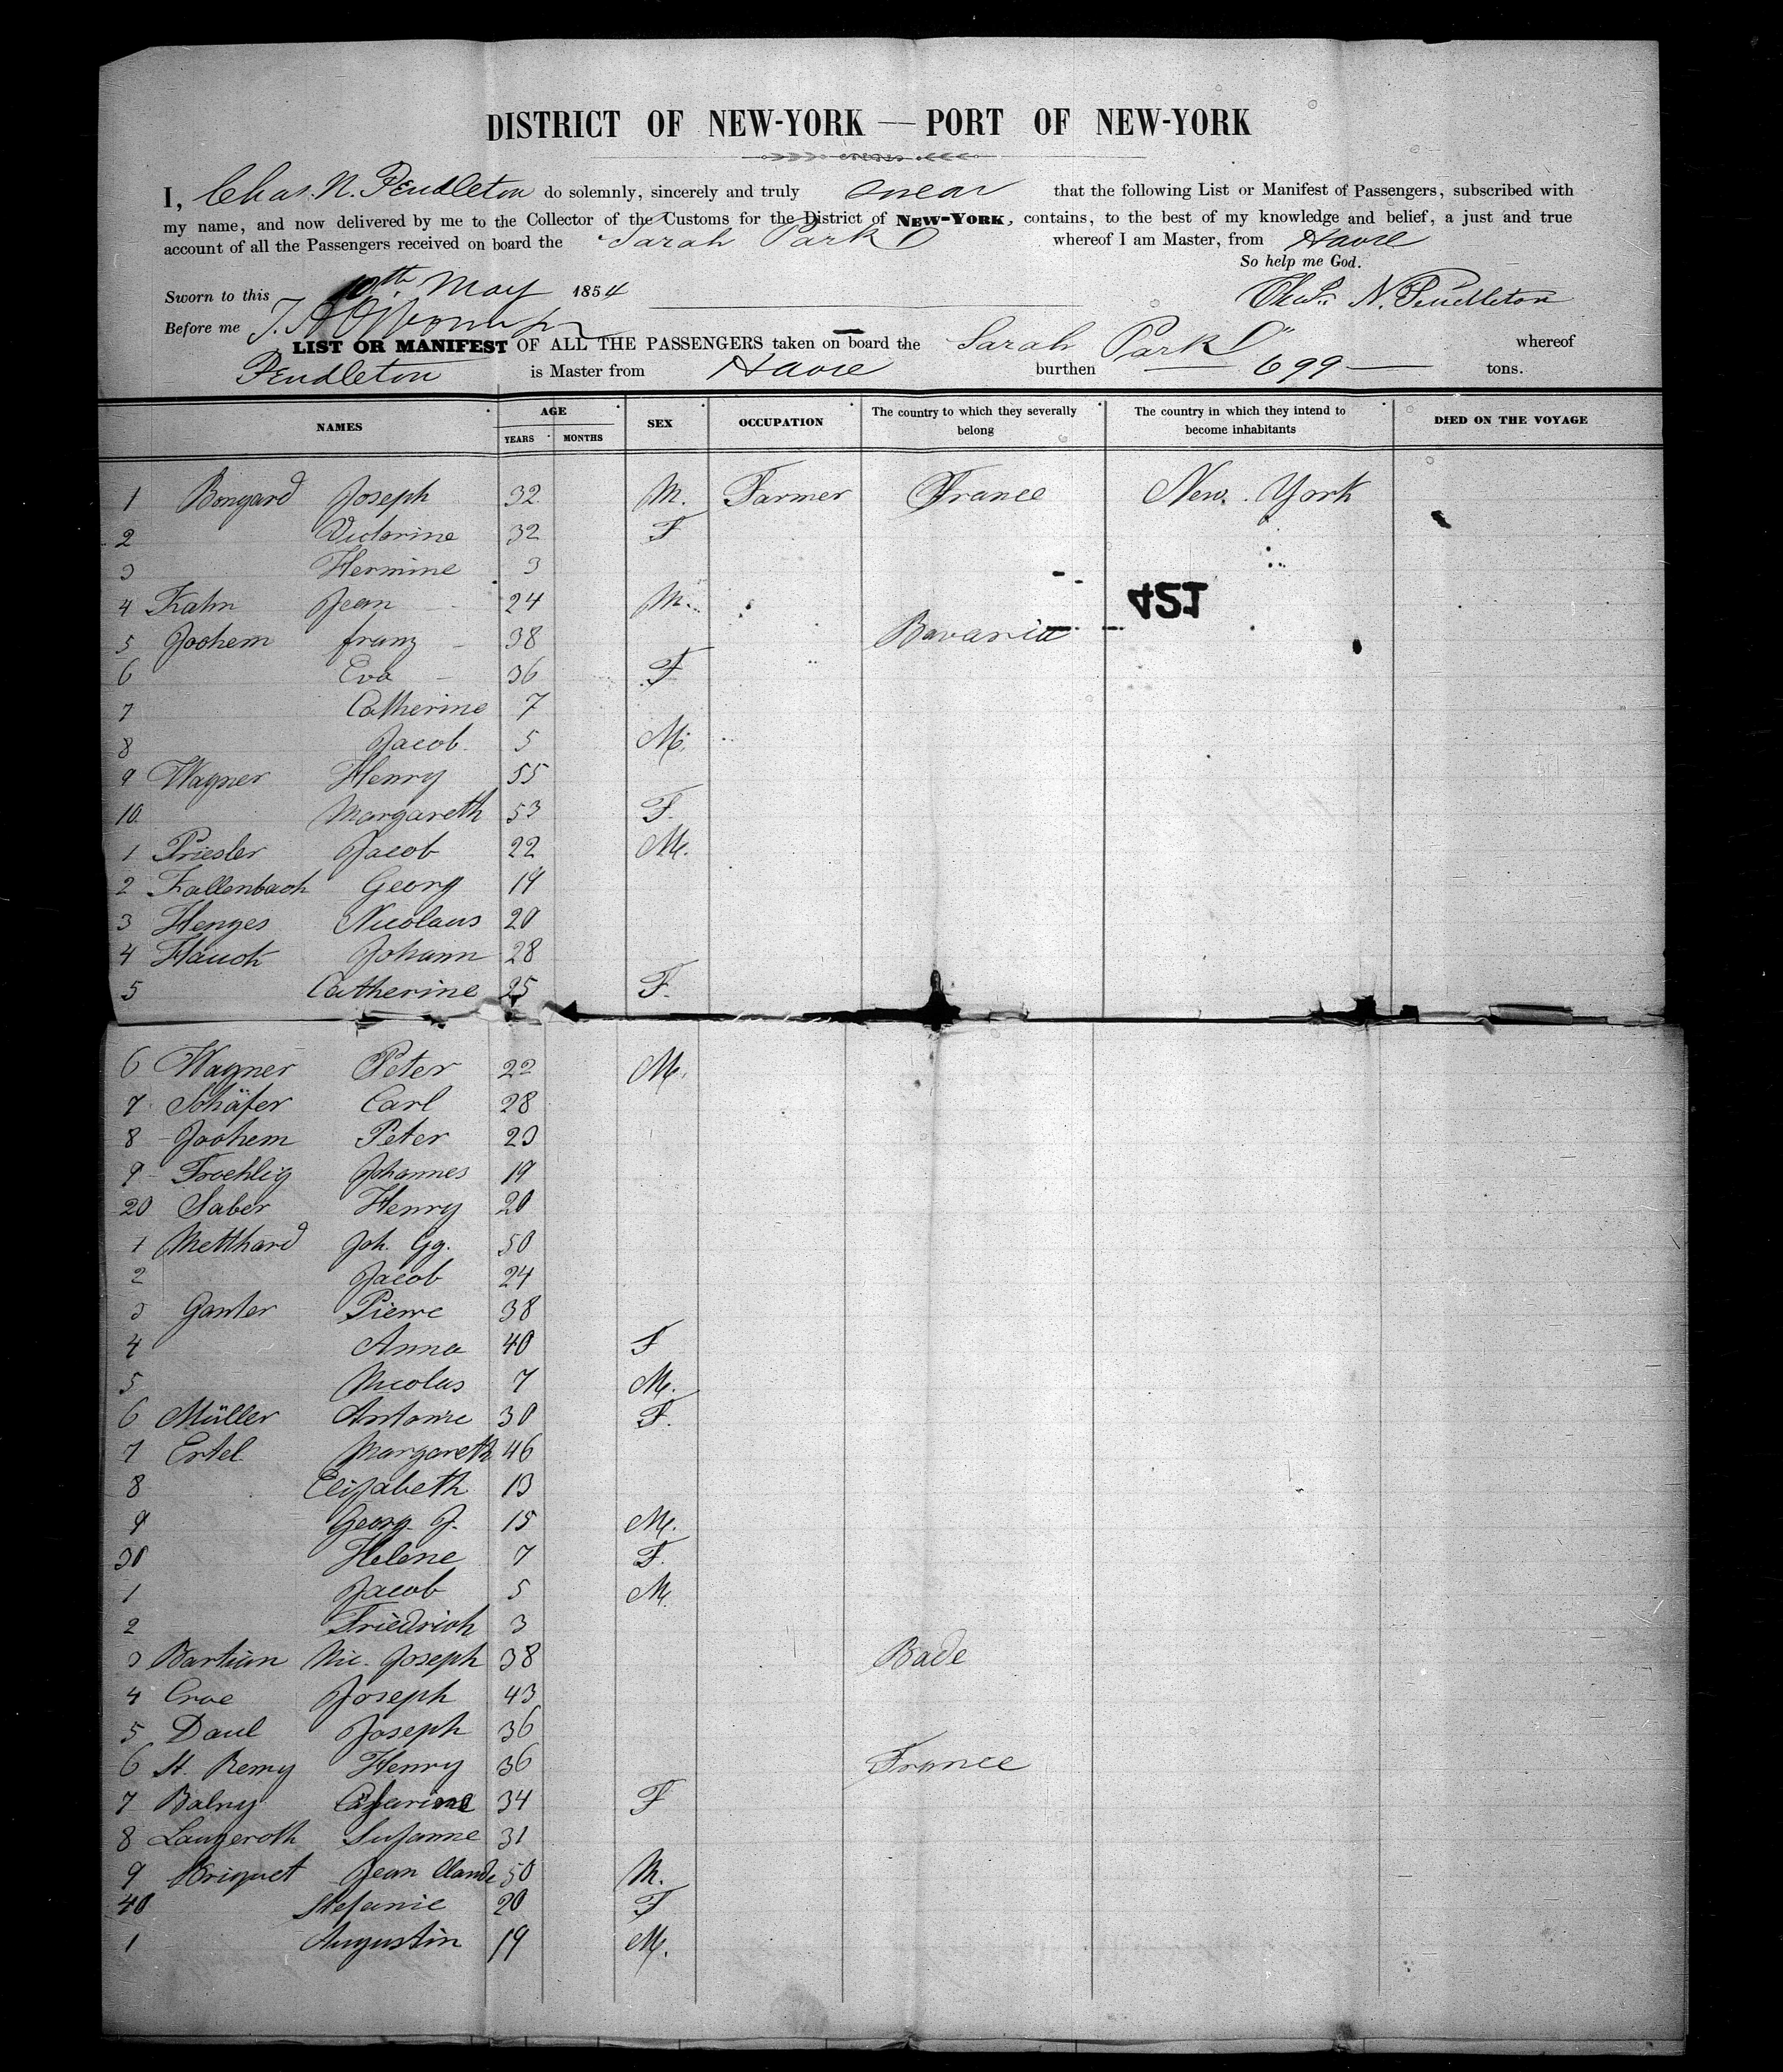 DISTRICT OF NEW-YORK — PORT OF NEW-YORK
I, Chas. N. Pendleton do solemnly, sincerely and truly swear that the following List or Manifest of Passengers, subscribed with
my name, and now delivered by me to the Collector of the Customs for the District of NEW-YORK, contains, to the best of my knowledge and belief, a just and true
account of all the Passengers received on board the Sarah Park whereof I am Master, from Havre
So help me God.
Sworn to this 10th May 1854 Chas. N. Pendleton
Before me
LIST OR MANIFEST OF ALL THE PASSENGERS taken on board the Sarah Park whereof
Pendleton is Master from Havre burthen 699 tons.
NAMES AGE YEARS MONTHS SEX OCCUPATION The country to which they severally belong The country in which they intend to become inhabitants DIED ON THE VOYAGE
1 Bongard Joseph 32 M. Farmer France New York
2 Victorine 32 F
3 Hermine 3
4 Kahn Jean 24 M.
421
5 Jochem franz 38 Bavaria
6 Eva 36 F
7 Catherine 7
8 Jacob 5 M.
9 Wagner Henry 55
10 Margareth 53 F.
1 Priesler Jacob 22 M.
2 Kallenbach Georg 19
3 Henges Nicolaus 20
4 Hauck Johann 28
5 Catherine 25 F.
6 Wagner Peter 22 M.
7 Schäfer Carl 28
8 Jochem Peter 23
9 Froehlig Johannes 19
20 Saber Henry 20
1 Metthard Joh. Gg. 50
2 Jacob 24
3 Ganter Pierre 38
4 Anna 40 F
5 Nicolas 7 M.
6 Müller Antonie 30 F.
7 Ertel Margareth 46
8 Elisabeth 13
9 Georg. J. 15 M.
30 Helene 7 F.
1 Jacob 5 M.
2 Friedrich 3
3 Bartian Nic. Joseph 38 Bade
4 Croe Joseph 43
5 Daul Joseph 36
6 St. Remy Henry 36 France
7 Balny 34 F
8 Langeroth Susanne 31
9 Briquet Jean Claude 50 M.
40 Stefanie 20 F
1 Augustin 19 M.